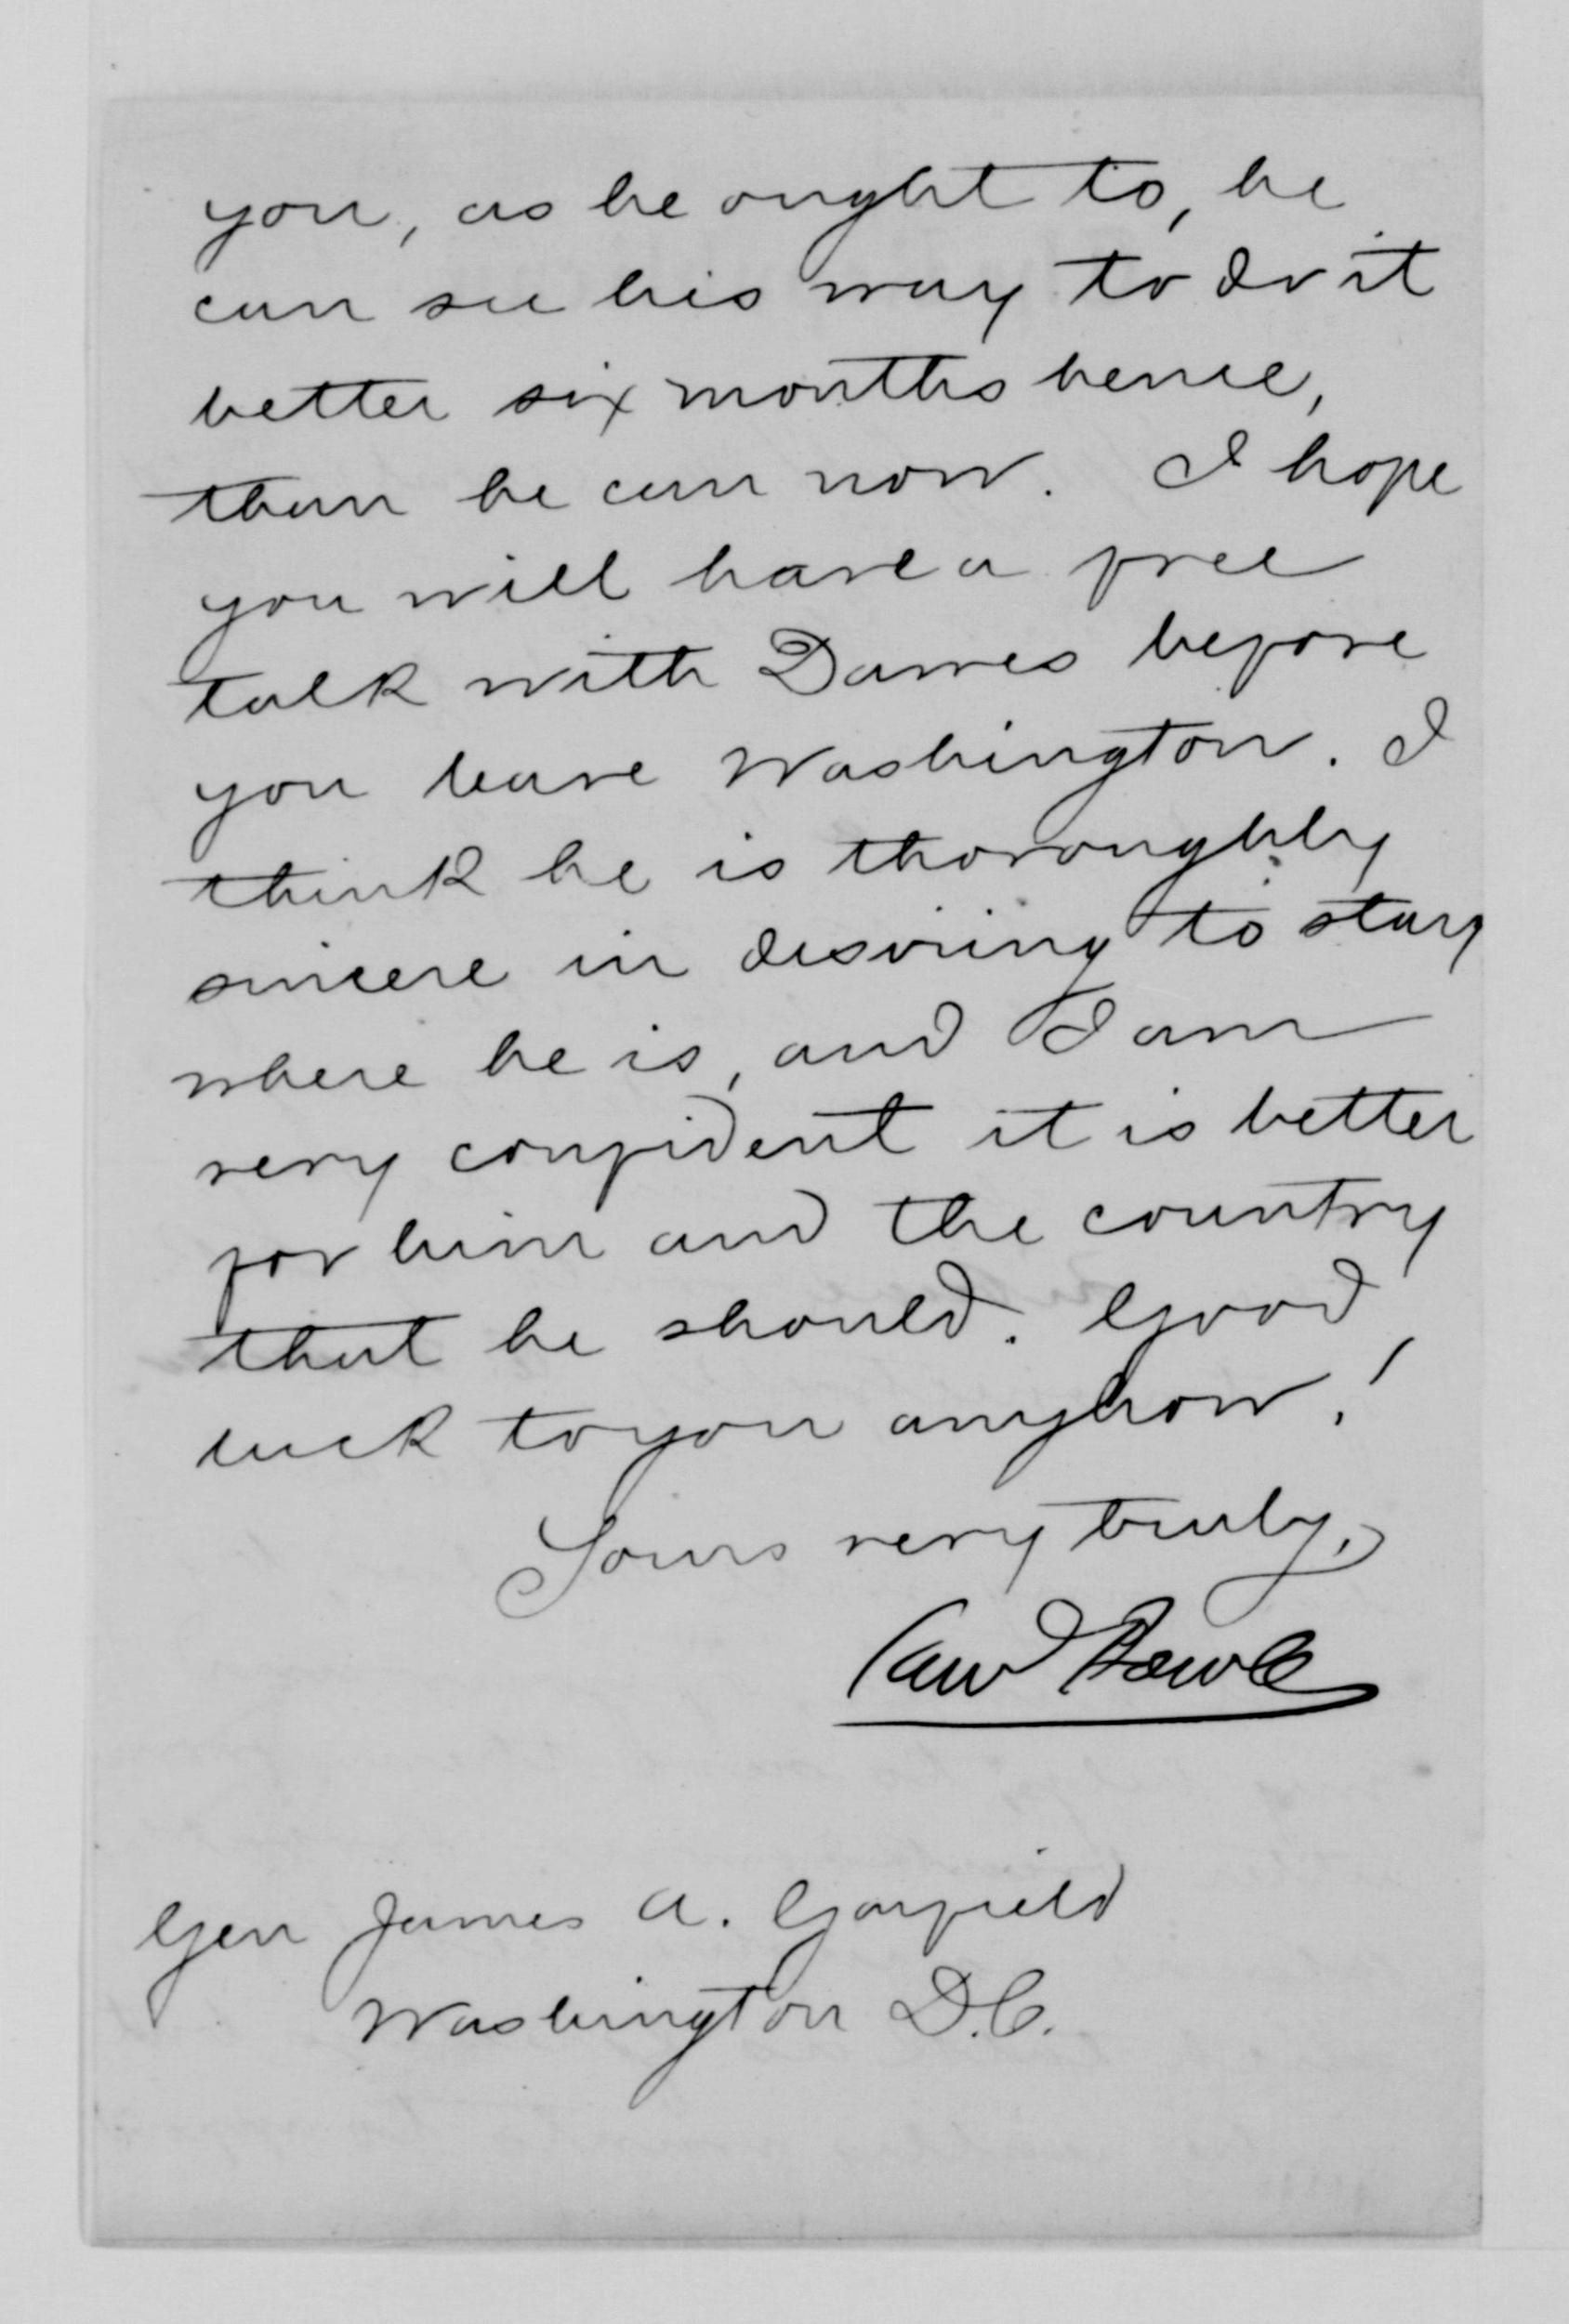 you, as he ought to, he
can see his way to do it
better six months hence,
than he can now. I hope
you will have a free
talk with Dawes before
you leave Washington. I
think he is thoroughly
sincere in desiring to stay
where he is, and I am
very confident it is better
for him and the country
that he should. Good
luck to you anyhow!
Yours very truly,
Sam'l Bowles
Gen James A. Garfield
Washington D.C.